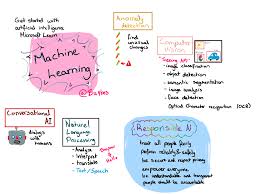 Get started with
artificial intelligence
Microsoft Learn
Machine
Learning
Anomaly
detection
find
unusual
changes
Computer
Vision
image classification
object detection
semantic segmentation
image analysis
face detection
Optical character recognition (OCR)
Conversational
AI
dialogs
with
humans
Natural
Language
Processing
Analyse
Interpret
translate
Text/Speech
Responsible AI
treat all people fairly
perform reliably & safely
be secure and respect privacy
empower everyone
be understandable and transparent
people should be accountable